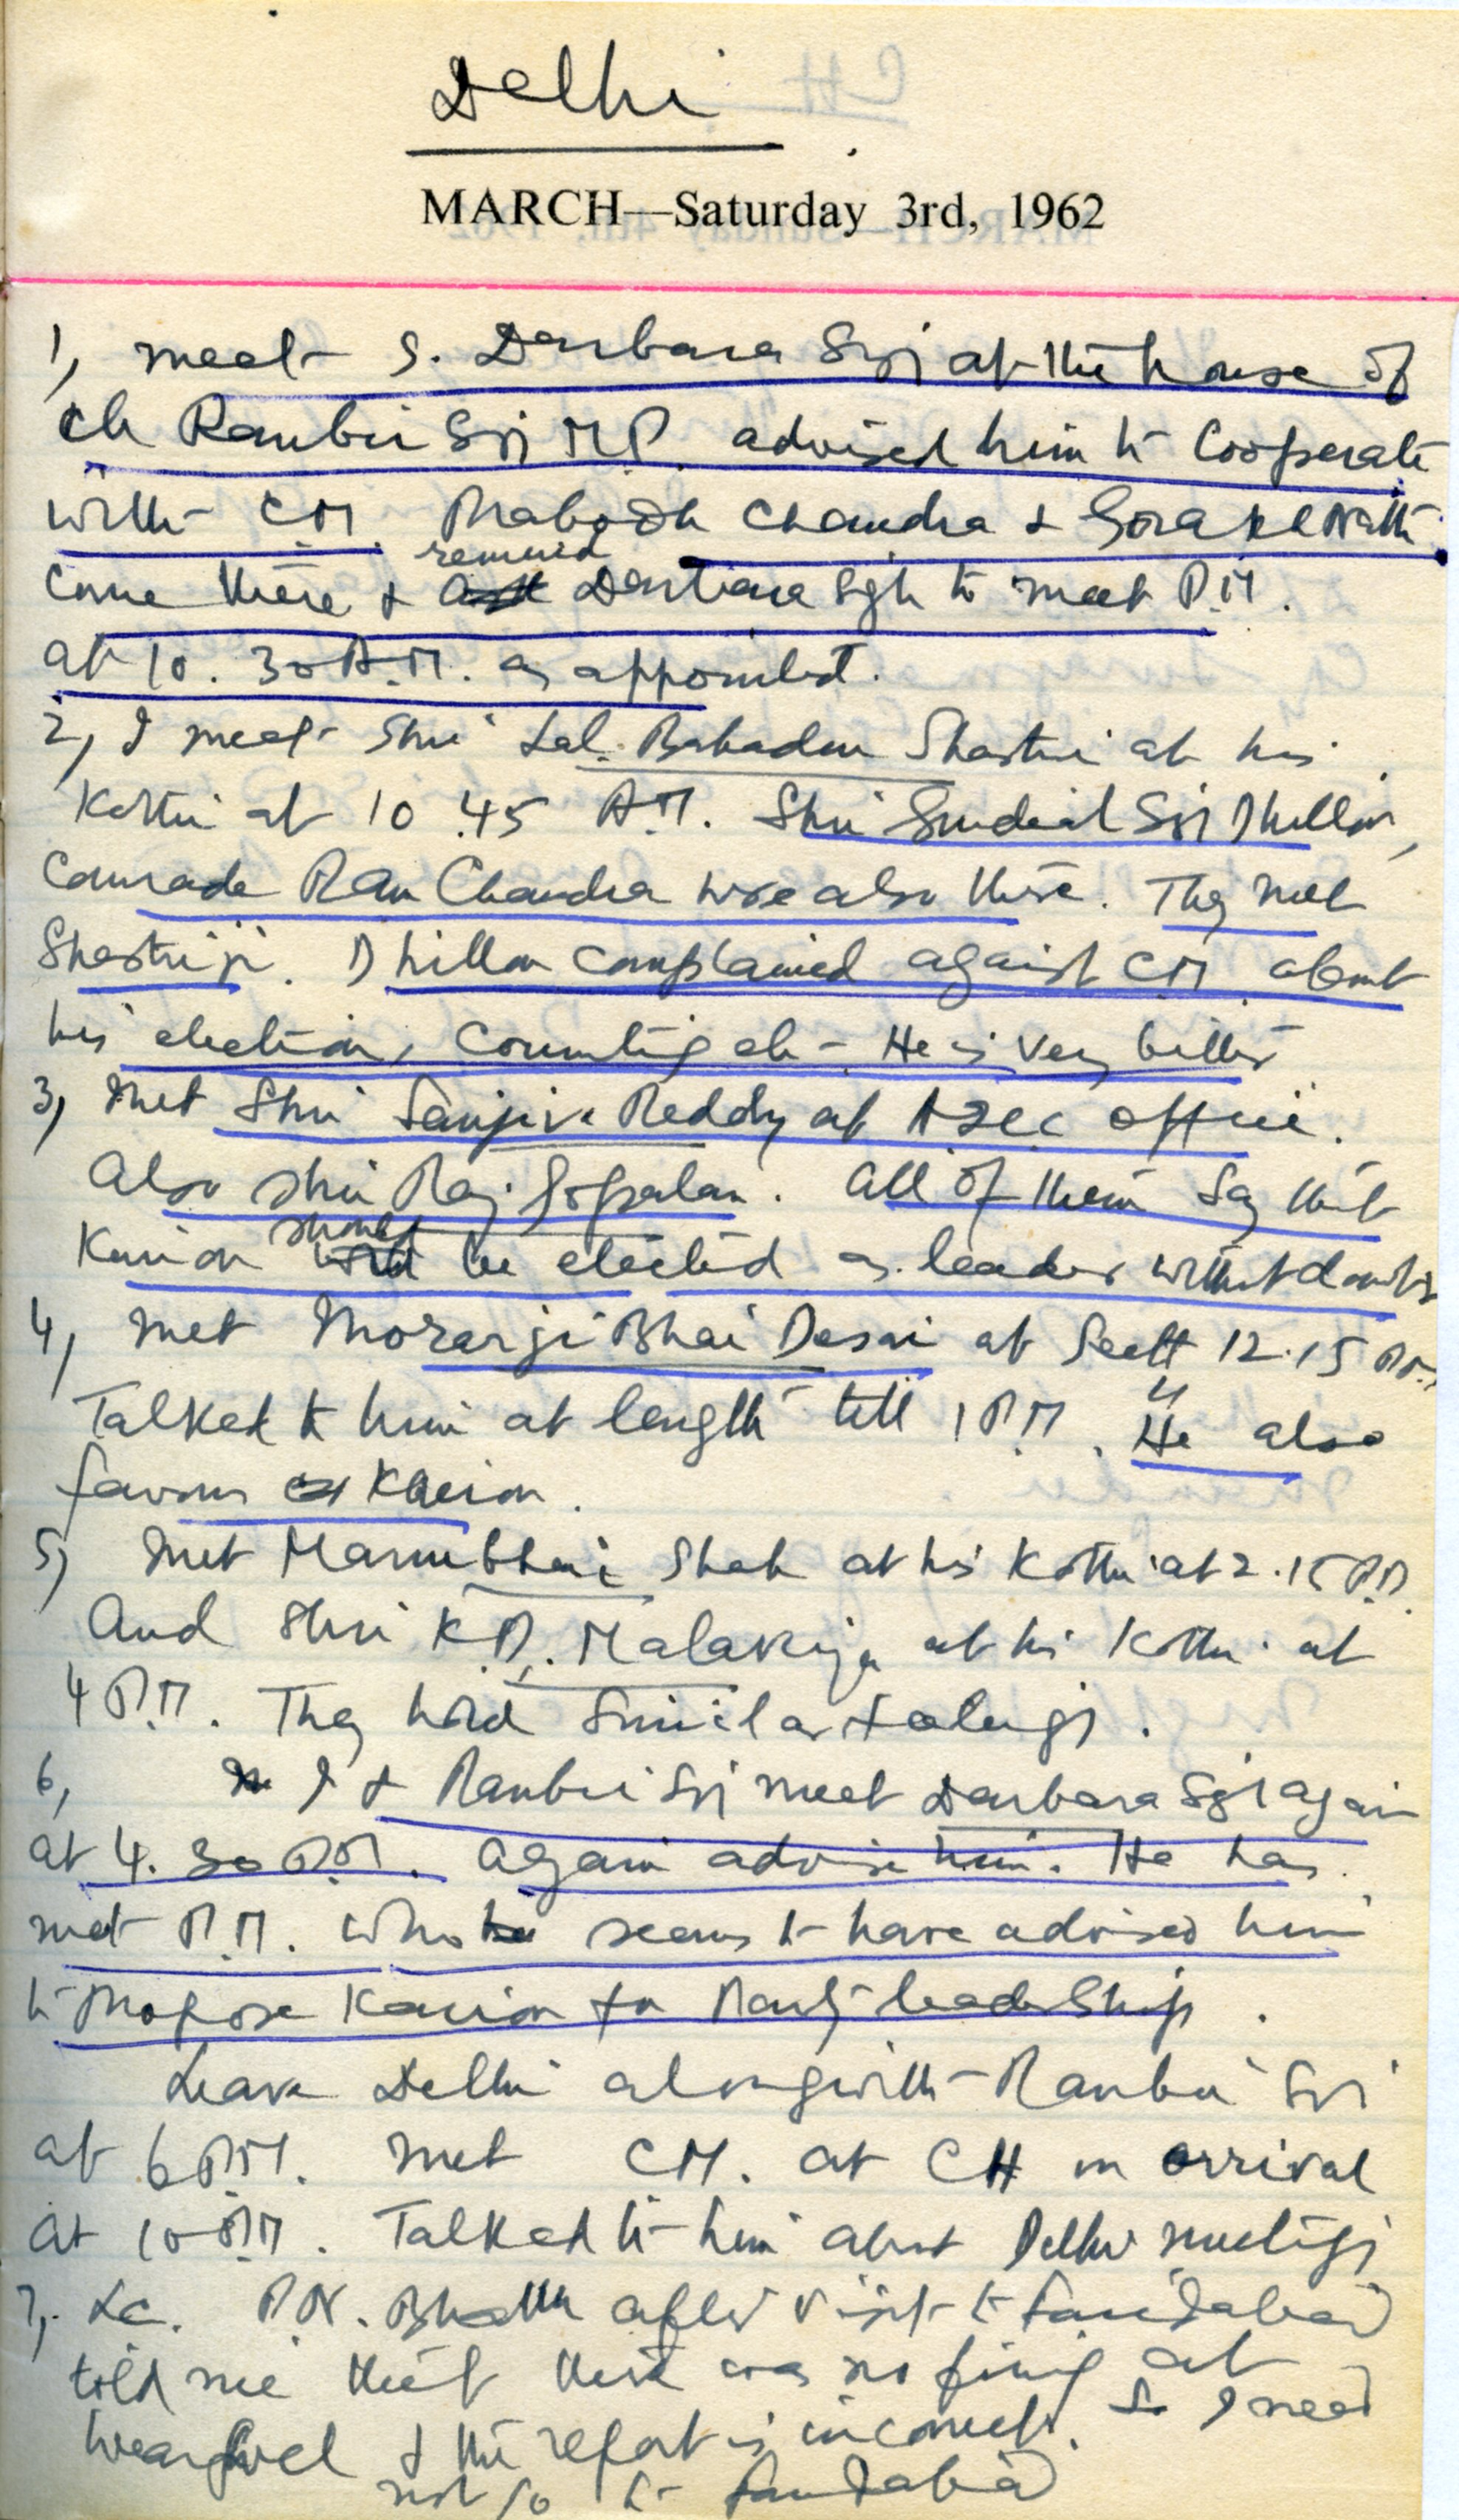 Delhi
MARCH—Saturday 3rd, 1962
1, meet S. Darbara Sgi at the house of
Ch Ranbir Sgi M.P. advised him to Cooperate
with C.M. Prabodh Chandra & Gorakh Nath
remind
come there & Darbara Sgh to meet P.M.
at 10.30 A.M. as appointed.
2, I meet Shri Lal Bahadur Shastri at his
Kothi at 10.45 A.M. Shri Gurdial Sgi Dhillon,
Comrade Ram Chandra were also there. They met
Shastriji. Dhillon complained against CM about
his election, Counting etc - He is very bitter
3, Met Shri Sanjiva Reddy at AICC office.
Also Shri Raj Gopalan. All of them say that
should
Kairon be elected as leader without doubts
4, Met Morarji Bhai Desai at Sectt 12.15 P.M.
Talked to him at length till 1 P.M. He also
favours Kairon.
5, Met Manubhai Shah at his Kothi at 2.15 P.M.
And Shri K.D. Malaviya at his Kothi at
4 P.M. They hold similar feelings.
6, I & Ranbir Sgi meet Darbara Sgi again
at 4.30 P.M. Again advise him. He has
met P.M. who seems to have advised him
to propose Kairon for Party leadership.
Leave Delhi alongwith Ranbir Sgi
at 6 P.M. Met CM. at CH on arrival
at 10 P.M. Talked to him about Delhi meetings
7, La. P.N. Bhalla after visit to Faridabad
told me that there was no firing at
& the report is incorrect. So I need
not go to Faridabad